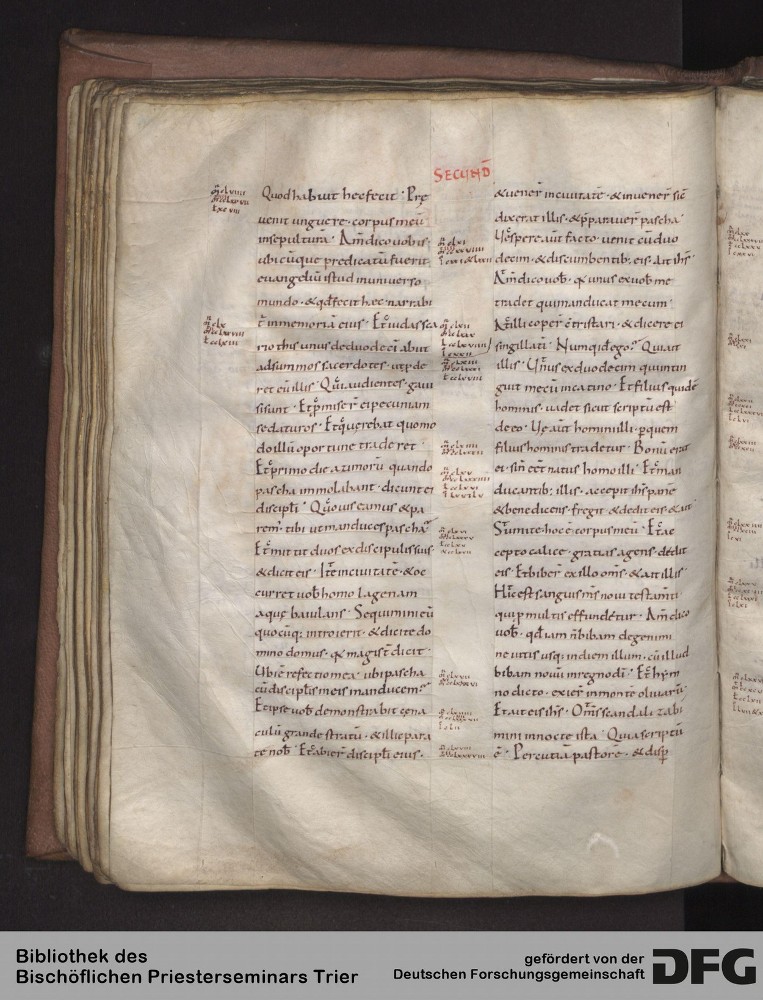 SECUND̄
Quod habuit hec fecit · Pre
uenit unguere · corpus meū
insepultura · Am̄ dico uobis ·
ubicūque predicatū fuerit
euangeliū istud inuniuerso
mundo · & qd̄ fecit hec narrabi
t̄ inmemoriā eius · Et iudas sca
riothis unus deduodecī abiit
adsummos sacerdotes · utpde
ret eū illis · Qui audientes · gaui
sisunt · Et pmiser ei pecuniam
sedaturos · Et querebat quomo
do illū oportune traderet ·
Et primo die azimorū quando
pascha immolabant · dicunt ei
discipli · Quo uis eamus & pa
rem' tibi ut manduces pascha
Et mittit duos exdiscipulis suis ·
& dicit eis · Ite incuitate · & oc
curret uob homo lagenam
aque baiulans · Sequimini eū
quocūq; introierit · & dicite do
mino domus · q̄ magist̄ dicit ·
Ubi ē refectio mea · ubi pascha
cū disciplis meis manducem
Et ipse uob demonstrabit cena
culū grande stratū · & illic para
te nob · Et abier discipli eius ·
& uener incuitate · & inuener sic
dixerat illis · & pparauer pascha ·
Uespere aut facto · uenit cū duo
decim · & discumbentib; eis · ait ihs
Am̄ dico uob · q unus exuob me
tradet qui manducat mecum ·
At illi ceper c̄tristari · & dicere ei
singillati · Numquid ego · Qui ait
illis · Unus exduodecim qui intin
guit mecū incatino · Et filius quidē
hominis · uadet sicut scriptū est
deeo · Ue aut homini illi · p quem
filius hominis tradetur · Bonū erat
ei · sin̄ eet natus homo ille · Et man
ducantib; illis · accepit ihs panē
& benedicens · fregit · & dedit eis · & ait ·
Sumite · hoc ē corpus meū · Et ac
cepto calice · gratias agens · dedit
eis · Et biber exillo oms · & ait illis ·
Hic est sanguis ms noui testamti
qui p multis effundetur · Am̄ dico
uob · qd iam n̄ bibam degenimi
ne uitis usq; indiem illum · cū illud
bibam nouū inregno di · Et hym
no dicto · exier inmonte oliuarū
Et ait eis ihs · Oms scandalizabi
mini innocte ista · Quia scriptū
ē · Percutiā pastorē · & disp
Bibliothek des
Bischöflichen Priesterseminars Trier
gefördert von der
Deutschen Forschungsgemeinschaft
DFG